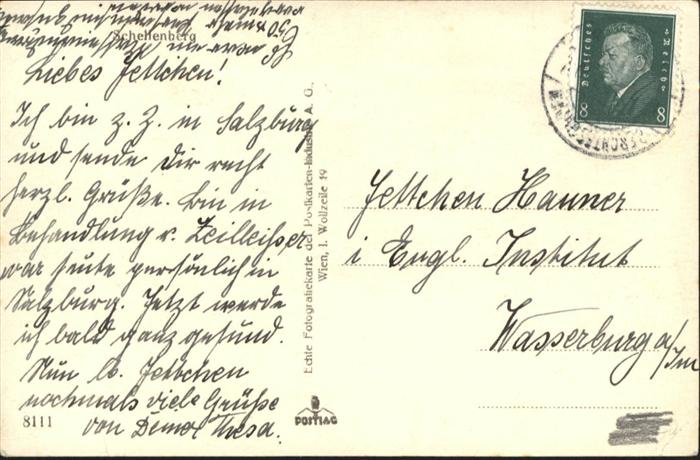 Schellenberg
Liebes Jettchen!
Ich bin z. Z. in Salzburg
und sende Dir recht
herzl. Grüße. Bin in
Behandlung v. Zeilleißer
war heute persönlich in
Salzburg. Jetzt werde
ich bald ganz gesund.
Nun lb. Jettchen
nochmals viele Grüße
von Deiner Thesa.
8111
Echte Fotografiekarte der Postkarten-Industrie A. G.,
Wien, I. Wollzeile 19
POSTIAG
Deutsches Reich
8 8
BERCHTESGADEN
Jettchen Hauner
i Engl. Institut
Wasserburg a/
Inn